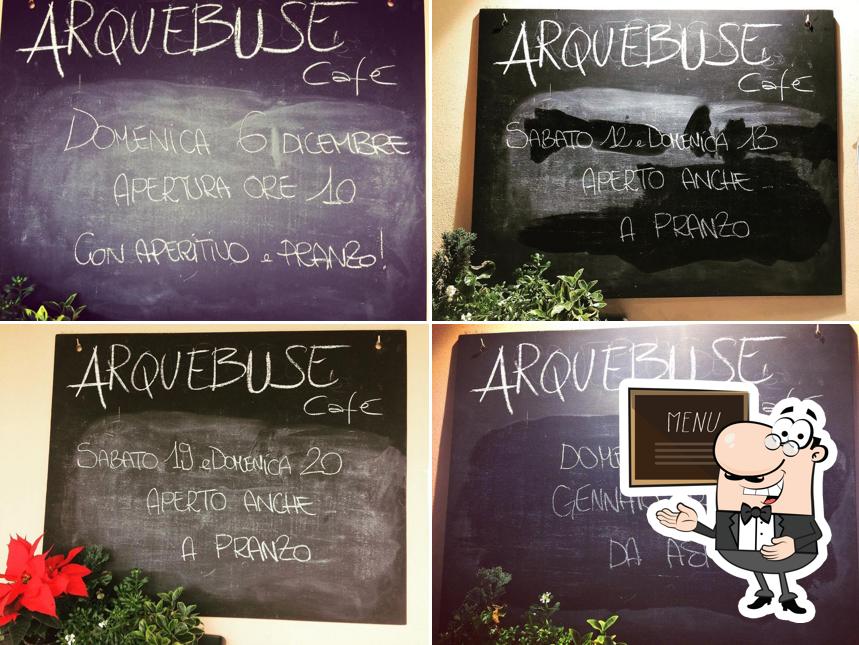 ARQUEBUSE
Café
DOMENICA 6 DICEMBRE
APERTURA ORE 10
CON APERITIVO e PRANZO!
ARQUEBUSE
Café
SABATO 12 e DOMENICA 13
APERTO ANCHE
A PRANZO
ARQUEBUSE
Café
SABATO 19 e DOMENICA 20
APERTO ANCHE
A PRANZO
ARQUEBUSE
MENU
DA